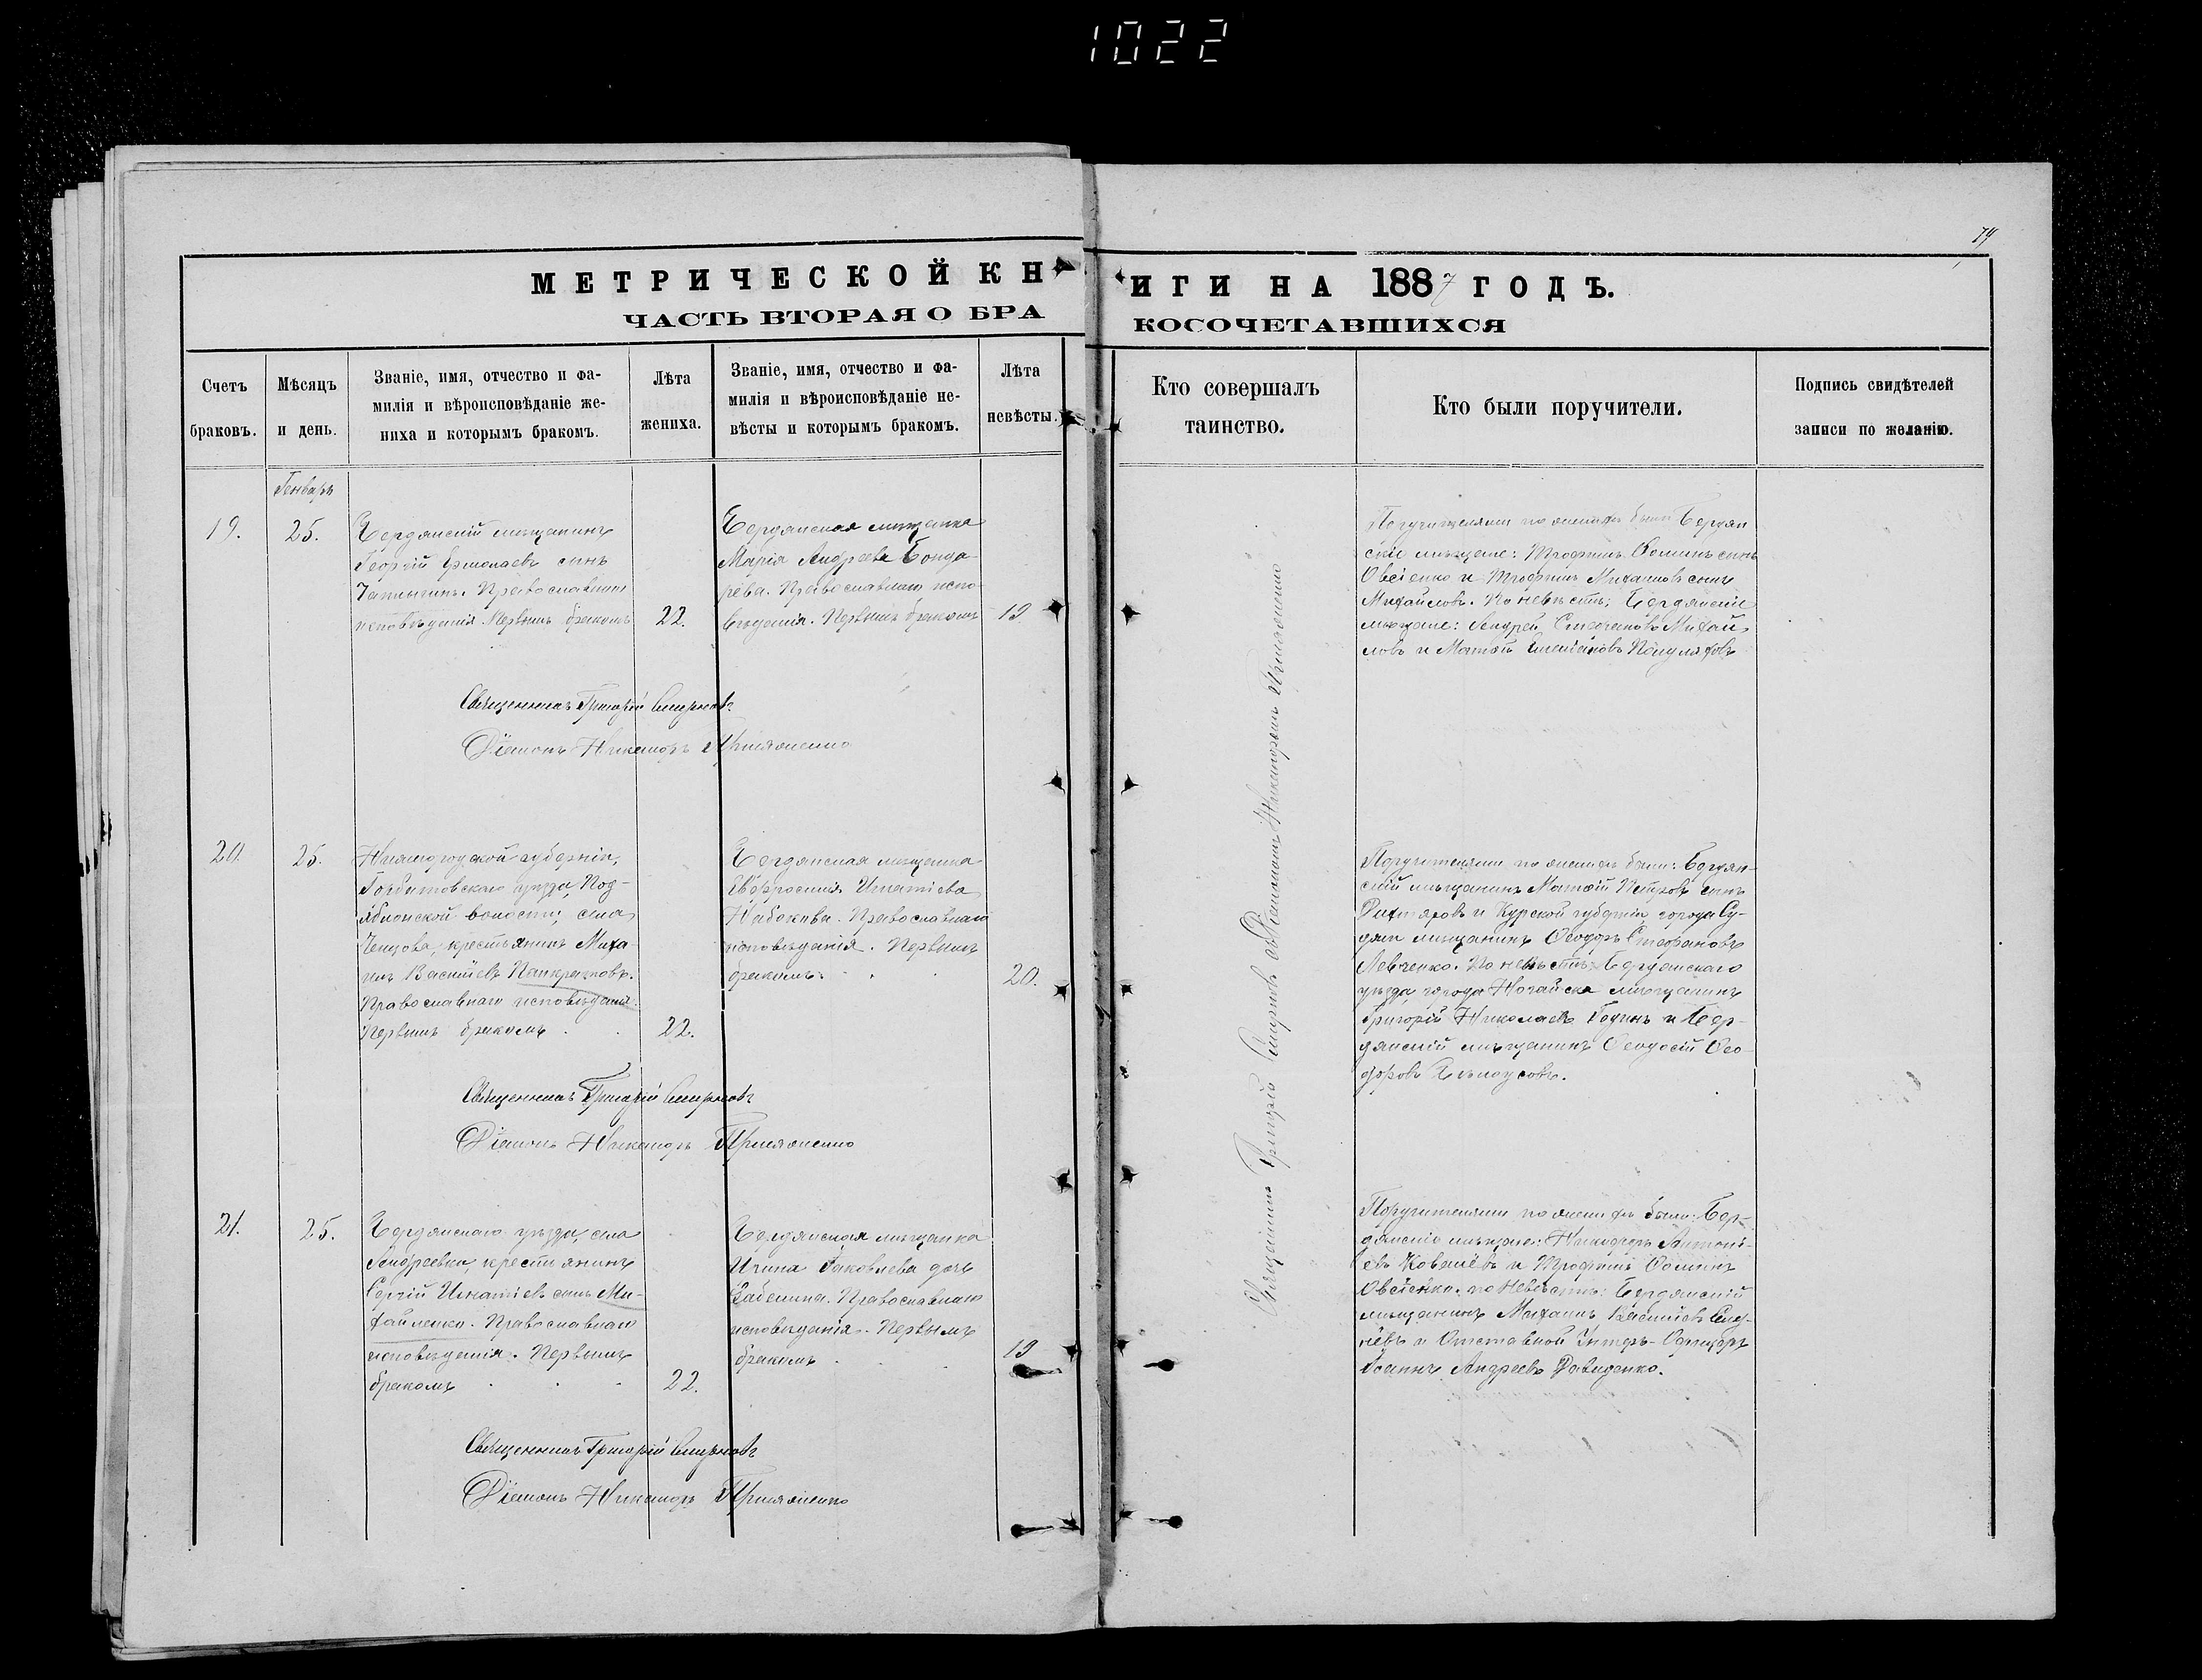 1022
74
МЕТРИЧЕСКОЙ КНИГИ НА 1887 ГОДЪ.
ЧАСТЬ ВТОРАЯ О БРАКОСОЧЕТАВШИХСЯ
Счетъ
браковъ.
Мѣсяцъ
и день.
Званіе, имя, отчество и фа-
милія и вѣроисповѣданіе же-
ниха и которымъ бракомъ.
Лѣта
жениха.
Званіе, имя, отчество и фа-
милія и вѣроисповѣданіе не-
вѣсты и которымъ бракомъ.
Лѣта
невѣсты.
Кто совершалъ
таинство.
Кто были поручители.
Подпись свидѣтелей
записи по желанію.
Генварь
19.
25.
Бердянскій мѣщанинъ
Георгій Ермолаевъ сынъ
Православнаго
исповѣданія. Первымъ бракомъ
22.
Бердянская мѣщанка
Марія Андреева Бонда-
рева. Православнаго испо-
вѣданія. Первымъ бракомъ
19
Поручителями по женихѣ были Бердян
скіе мѣщане: Трофимъ Фоминъ сынъ
Овсіенко и Трофимъ Михаиловъ сынъ
Михайловъ. По невѣстѣ: Бердянскіе
мѣщане: Андрей Стефановъ Михай-
ловъ и Матѳій
Священникъ Григорій Смирновъ
Діаконъ Никаноръ Присяженко
20.
25.
Нижегородской губерніи,
Горбатовскаго уѣзда, Под-
яблонской волости, села
крестьянинъ Миха-
илъ Василіевъ Панкратовъ.
Православнаго исповѣданія.
Первымъ бракомъ
22.
Бердянская мѣщанка
Евфросинія Игнатіева
Набокова. Православнаго
исповѣданія. Первымъ
бракомъ.
20.
Поручителями по женихѣ были: Бердян-
скій мѣщанинъ Матѳій Петровъ сынъ
Дихтяровъ и Курской губерніи города Су-
джи мѣщанинъ Ѳеодоръ Стефановъ
Левченко. По невѣстѣ: Бердянскаго
уѣзда города Ногайска мѣщанинъ
Григорій Николаевъ Годинъ и Бер-
дянскій мѣщанинъ Ѳеодосій Ѳео-
доровъ Бѣлоусовъ.
Священникъ Григорій Смирновъ
Діаконъ Никаноръ Присяженко
21.
25.
Бердянскаго уѣзда, села
Андреевки, крестьянинъ
Сергій Игнатіевъ сынъ Ми-
хайленко. Православнаго
исповѣданія. Первымъ
бракомъ
22.
Бердянская мѣщанка
Ирина Іаковлева дочь
Бабенина. Православнаго
исповѣданія. Первымъ
бракомъ
19
Поручителями по женихѣ были: Бер-
дянскіе мѣщане: Никифоръ Антоні-
евъ Ковалёвъ и Трофимъ Фоминъ
Овсіенко. по невѣстѣ: Бердянскій
мѣщанинъ Михаилъ Василіевъ
и Отставной Унтеръ-Офицеръ
Іоаннъ Андреевъ Давиденко.
Священникъ Григорій Смирновъ
Діаконъ Никаноръ Присяженко
Священникъ Григорій Смирновъ съ Діакономъ Никаноромъ Присяженко